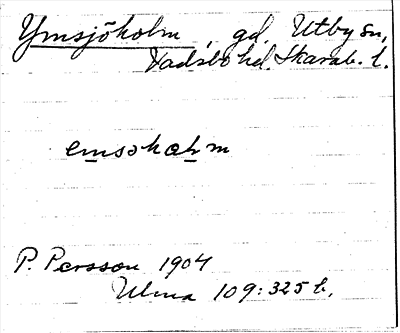 Ymsjöholm, gd, Utby sn,
Vadsbo hd. Skarab. l.
emsohahm
P. Persson 1904
Ulma 109:325 b.